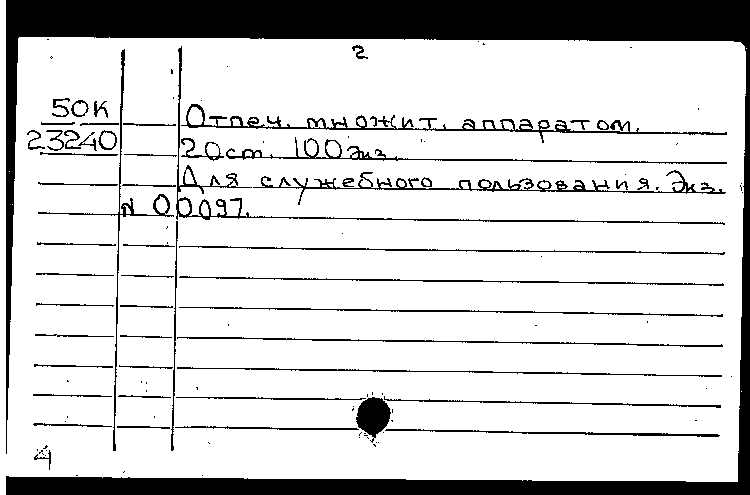 2
50К Отпеч. множит. аппаратом.
23240 20см. 100экз.
Для служебного пользования. Экз.
№ 00097.
4